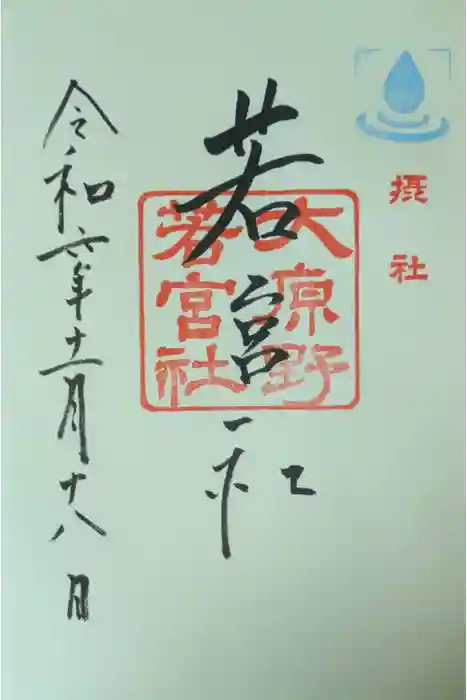 摂社
若宮社
大原野
若宮社
令和六年十一月十八日